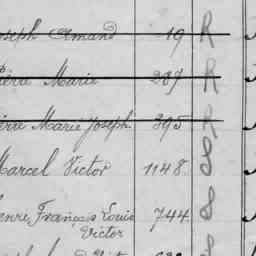 oseph Amand 19 R
ierre Marie 287 R
ierre Marie Joseph 895 R
Marcel Victor 1148 S
enri, François Louis 744 S
Victor